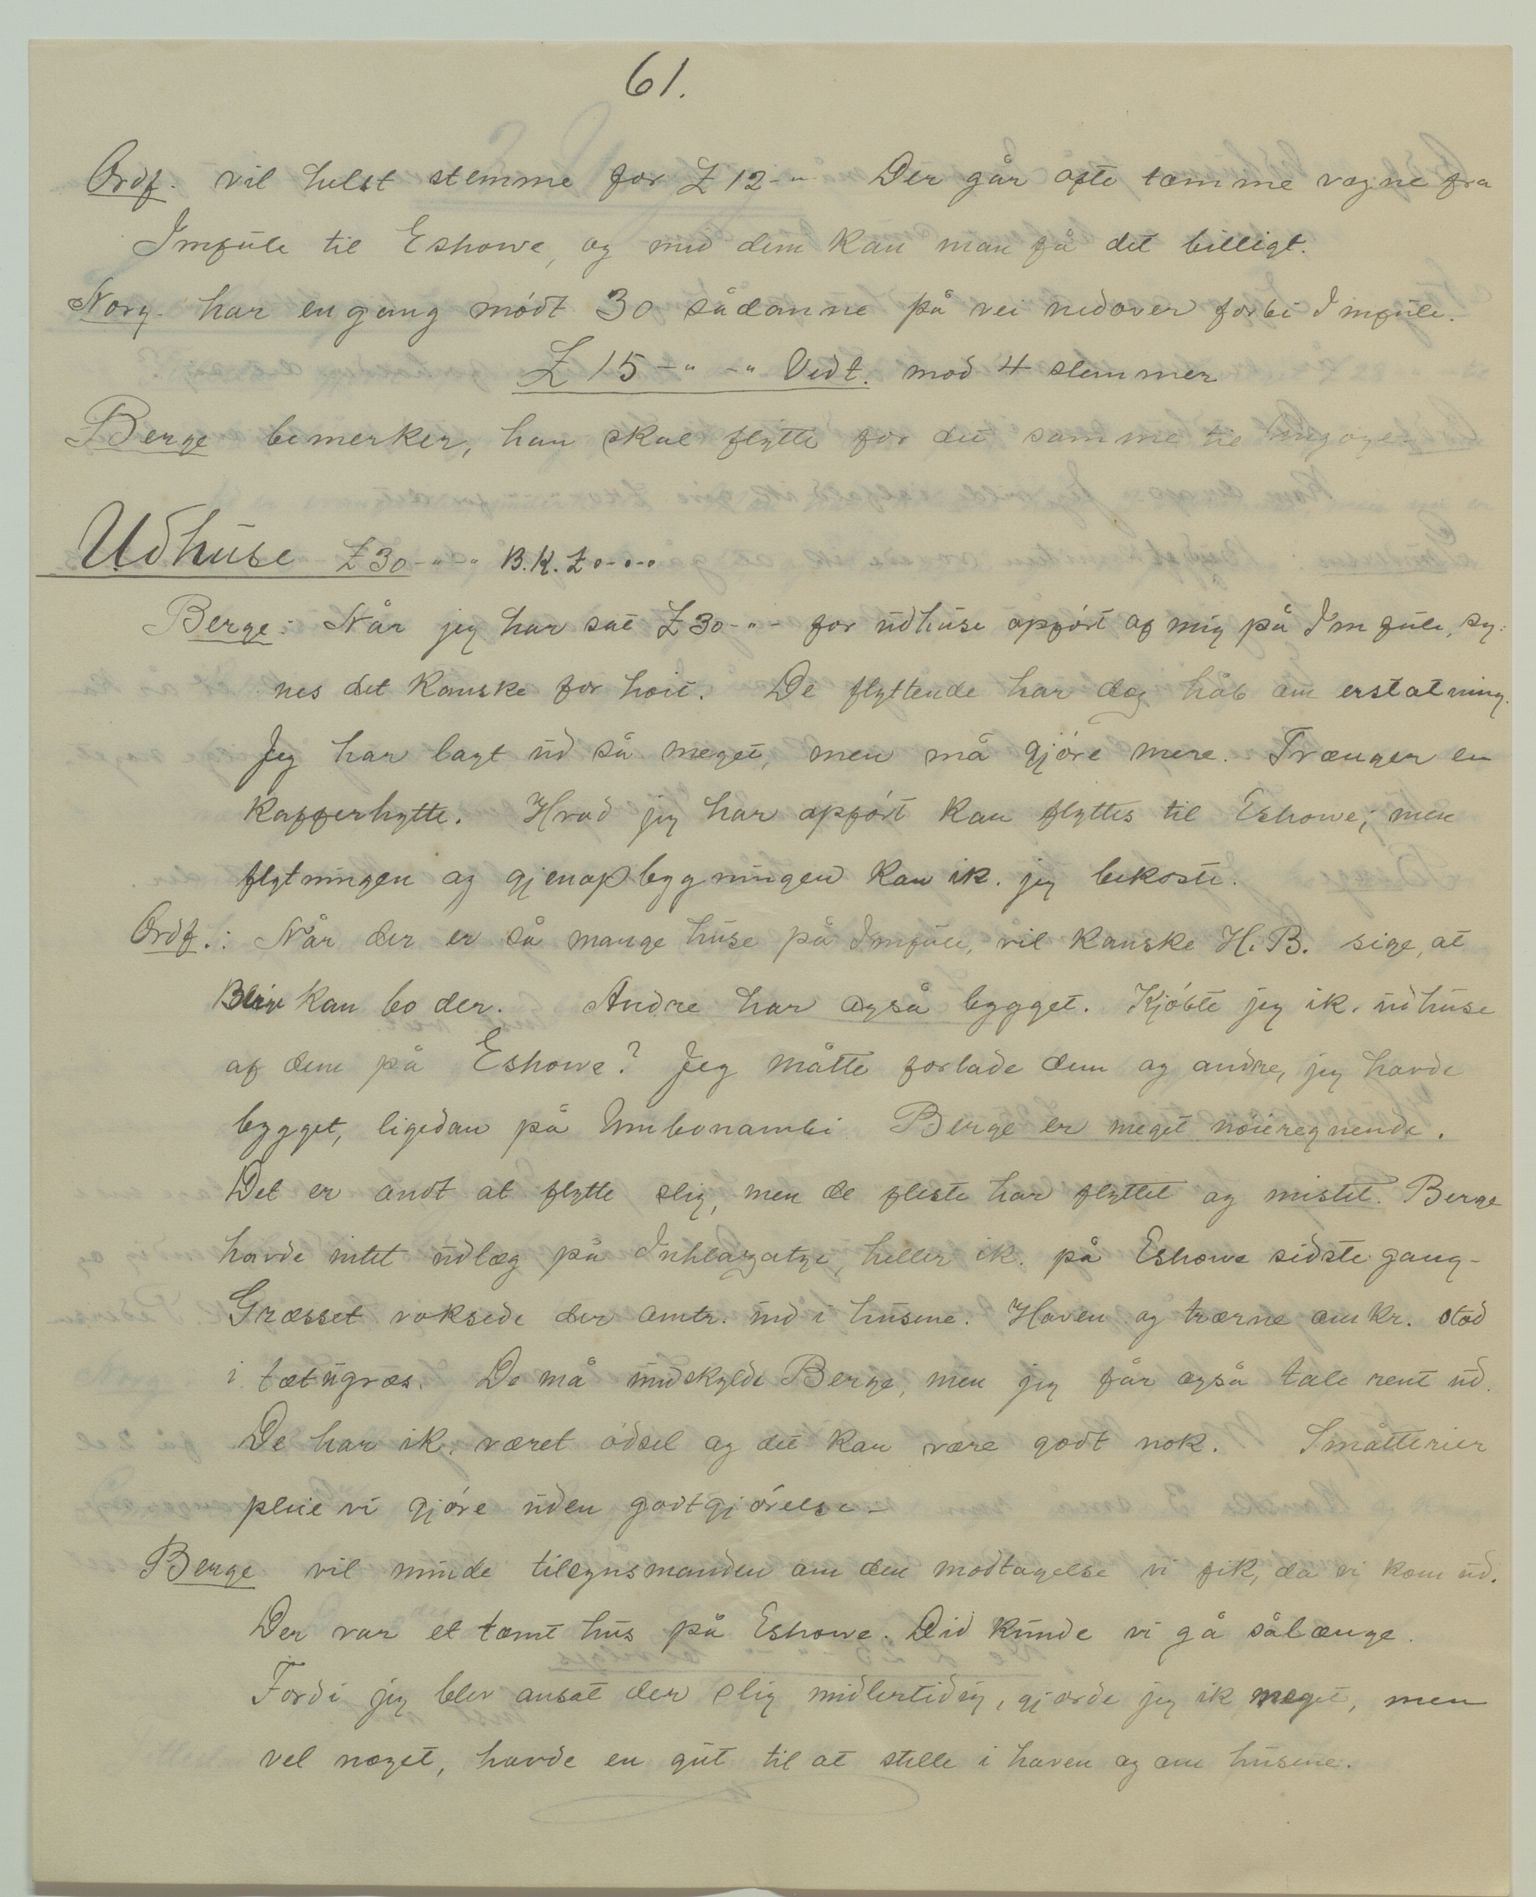 61.
Ordf. vil helst stemme for £ 12-" Der går ofte tomme vogne fra
Imfule til Eshowe, og med dem kan man få det billigt.
Norg. har engang mødt 30 sådanne på vei nedover forbi Imfule.
£ 15-"-" Vedt. mod 4 stemmer
Berge bemerker, han skal flytte for det samme til
Udhuse £30-"-" B.K. £"-"-"
Berge: Når jeg har sat £30-"- for udhuse opført af mig på Imfule, sy:
nes det kanske for høit. De flyttende har dog håb om erstatning.
Jeg har lagt ud så meget, men må gjøre mere. Trænger en
kafferhytte. Hvad jeg har opført kan flyttes til Eshowe; men
flytningen og gjenopbygningen kan ik. jeg bekoste.
Ordf.: Når der er så mange huse på Imfule, vil kanske H.B. sige, at
kan bo der. Andre har også bygget. Kjøbte jeg ik. udhuse
af dem på Eshowe? Jeg måtte forlade dem og andre, jeg havde
bygget, ligedan på Umbonambi. Berge er meget nøieregnende.
Det er ondt at flytte slig, men de fleste har flyttet og mistet. Berge
havde intet udlæg på Inhlazatze, heller ik. på Eshowe sidste gang-
Græsset voksede der omtr. ind i husene. Haven og trærne omkr. stod
i tæt ugræs. De må undskylde Berge, men jeg får også tale rent ud.
De har ik. været ødsel og det kan være godt nok. Småtterier
pleie vi gjøre uden godtgjørelse-
Berge vil minde tilsynsmanden om den modtagelse vi fik, da vi kom ud.
Der var et tomt hus på Eshowe. Did kunde vi gå sålænge.
Fordi jeg blev ansat der slig midlertidig, gjorde jeg ik meget, men
vel noget, havde en gut til at stelle i haven og om husene.